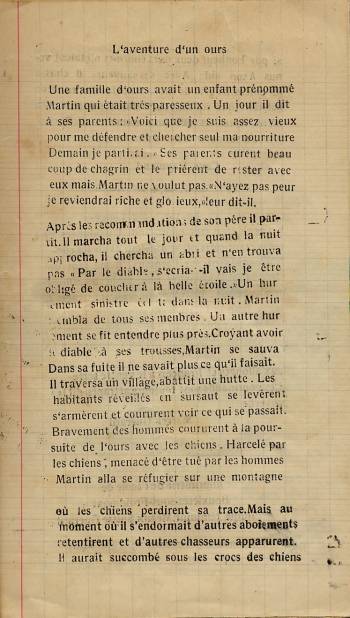 L'aventure d'un ours
Une famille d'ours avait un enfant prénommé
Martin qui était très paresseux . Un jour il dit
à ses parents : «Voici que je suis assez vieux
pour me défendre et chercher seul ma nourriture
Demain je partirai . » Ses parents eurent beau
coup de chagrin et le prièrent de rester avec
eux mais Martin ne voulut pas.«N'ayez pas peur
je reviendrai riche et glo ieux,»leur dit-il.
Après les recommandations de son père il par-
tit. Il marcha tout le jour et quand la nuit
approcha, il chercha un abri et n'en trouva
pas « Par le diable , s'écria- -il vais je être
obligé de coucher à la belle étoile .»Un hur
ement sinistre dans la nuit . Martin
embla de tous ses menbres . Un autre hur
ement se fit entendre plus près. Croyant avoir
e diable à ses trousses,Martin se sauva
Dans sa fuite il ne savait plus ce qu'il faisait.
Il traversa un village,abattit une hutte . Les
habitants réveillés en sursaut se levèrent
s'armèrent et coururent voir ce qui se passait.
Bravement des hommes coururent à la pour-
suite de l'ours avec les chiens . Harcelé par
les chiens , menacé d'être tué par les hommes
Martin alla se réfugier sur une montagne
où les chiens perdirent sa trace.Mais au
moment où il s'endormait d'autres aboiements
retentirent et d'autres chasseurs apparurent.
Il aurait succombé sous les crocs des chiens